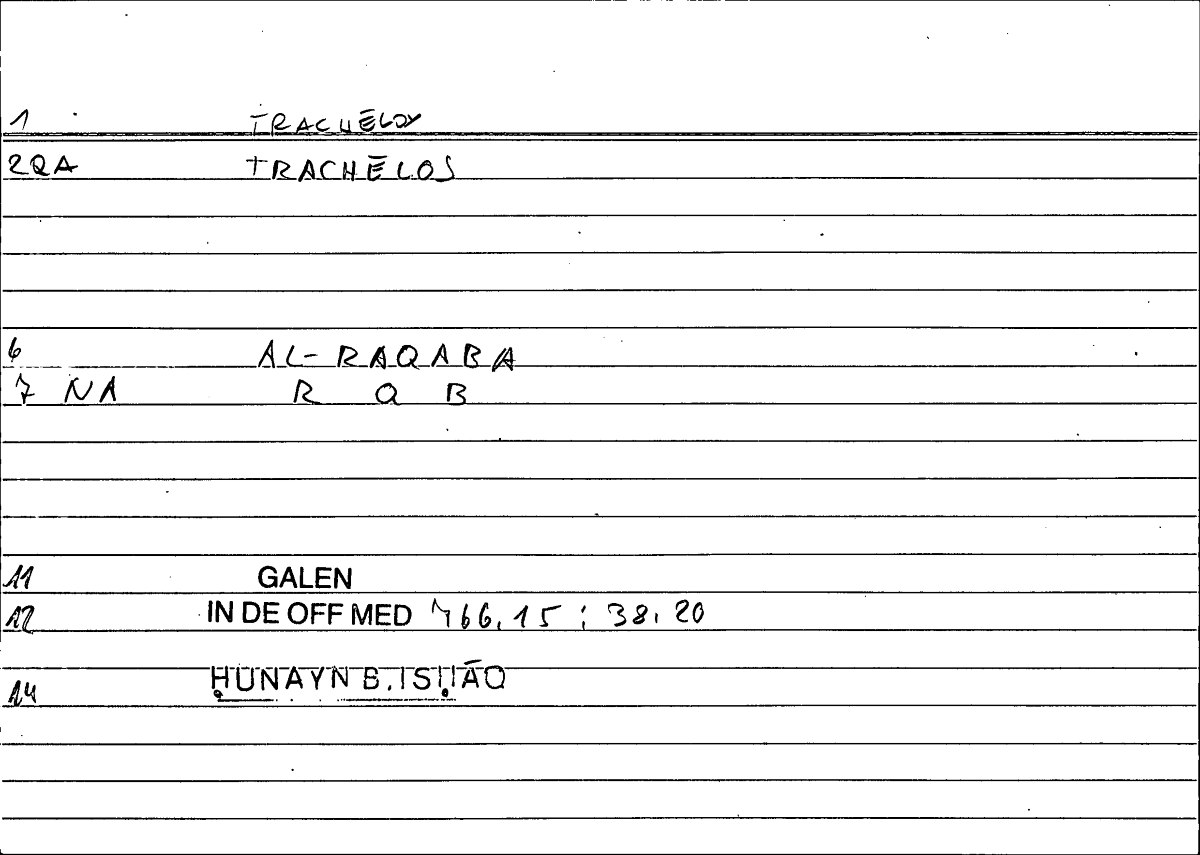 1 TRACHĒLOY
2QA TRACHĒLOS
6 AL-RAQABA
7 NA R Q B
11 GALEN
12 IN DE OFF MED 766,15 : 38,20
14 ḤUNAYN B. ISḤĀQ